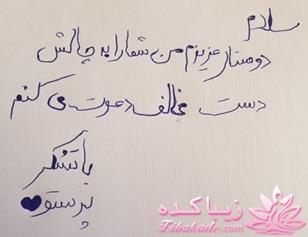 سلام
دوستان عزیزم من شما را به چالش
دست مخالف دعوت می کنم
با تشکر
پرستو
زیباکده
Zibakade.com